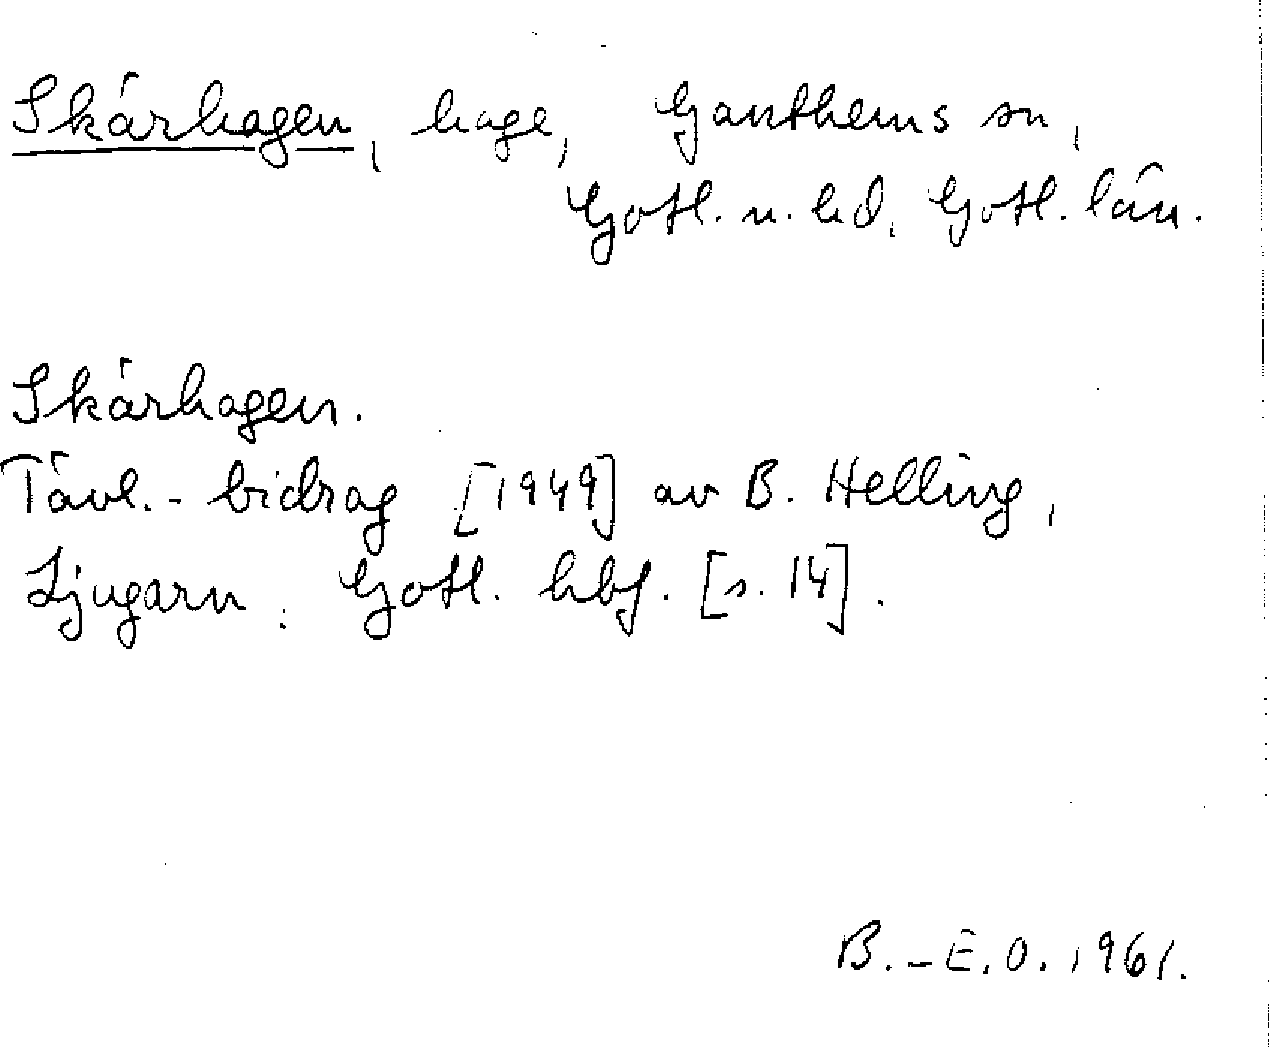 Skärhagen, hage, Ganthems sn,
Gotl. n. hd, Gotl. län.
Skärhagen.
Tävl.-bidrag [1949] av B. Helling,
Ljugarn. Gotl. hbf. [s. 14].
B.-E.O. 1961.